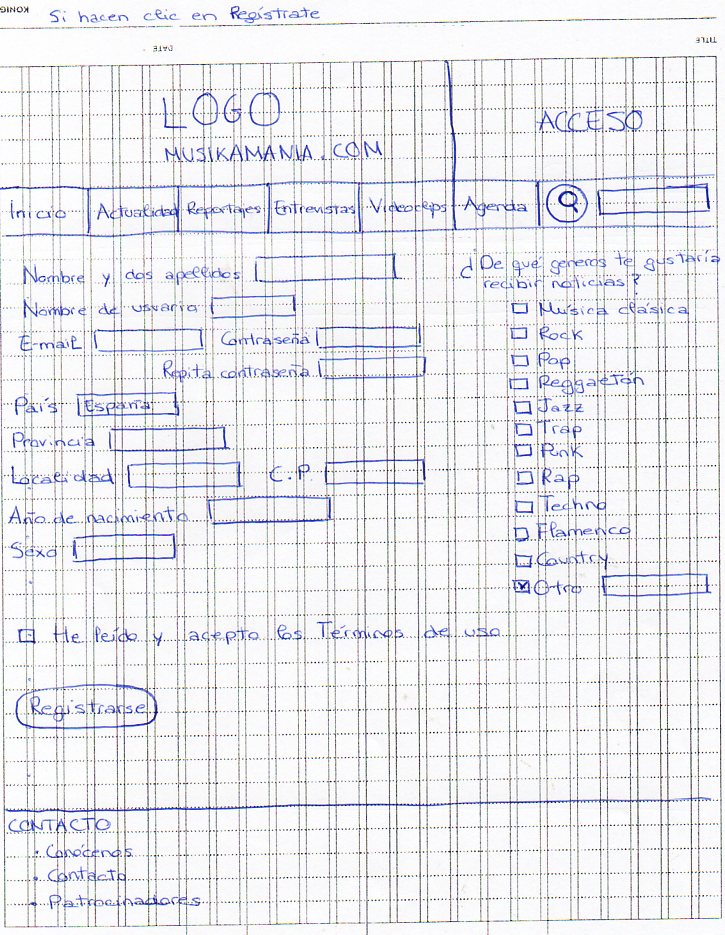 KONIG
Si hacen clic en Regístrate
DATE
TITLE
LOGO
MUSIKAMANIA.COM
ACCESO
Inicio Actualidad Reportajes Entrevistas Videoclips Agenda
Nombre y dos apellidos
Nombre de usuario
E-mail Contraseña
Repita contraseña
País España
Provincia
Localidad C.P.
Año de nacimiento
Sexo
¿De qué géneros te gustaría
recibir noticias?
Música clásica
Rock
Pop
Reggaetón
Jazz
Trap
Punk
Rap
Techno
Flamenco
Country
Otro
He leído y acepto los Términos de uso
Registrarse
CONTACTO
· Conócenos
· Contacto
· Patrocinadores